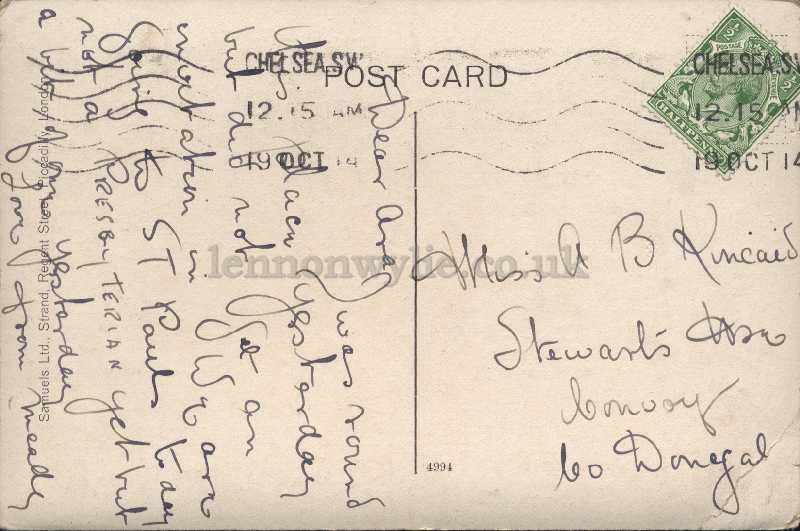 POST CARD
CHELSEA.S.W
12.15 AM
19 OCT 14
CHELSEA.S.W
12.15 AM
19 OCT 14
POSTAGE
HALFPENNY
Dear Ara I was round
yesterday
but did not get an
invitation in. We are
going to St Pauls today
not a PRESBYTERIAN yet but
a yesterday
from Meady
Miss A B Kincaid
Stewarts Hse
Convoy
Co Donegal
4994
Samuels Ltd., Strand, Regent Street, Piccadilly, London
lennonwylie.co.uk